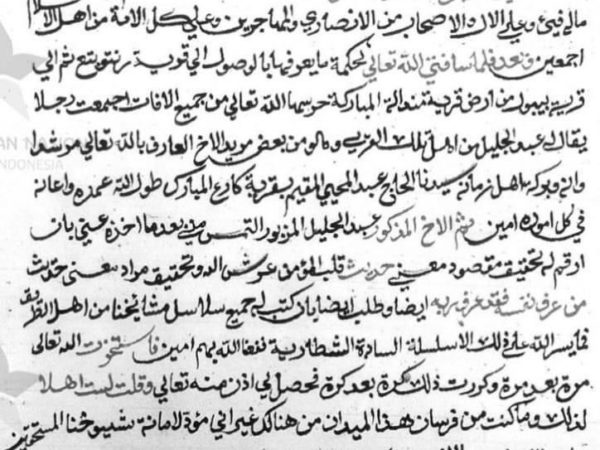 مالي فيئ وعلي الاله الاصحاب من الانصاري والمهاجرين وعلي كل الامة من اهل الاسلام
اجمعين وبعد فلما ساقتني الله تعالي لحكمة ما يعرفها بالوصول الي قرية رنتو بتع ثم الي
قرية بيبول من ارض قرية تنداله المباركة حرسها الله تعالي من جميع الافات اجتمعت رجلا
يقال له عبد الجليل من اهل تلك العربي وهو من بعض مريد الاخ العارف بالله تعالي مرشدا
وانه وبركة اهل زمانه سيدنا الحاج عبد المحيي المقيم بقرية كارغ المبارك طول الله عمره واعانه
في كل اموره امين ثم الاخ المذكور عبد الجليل المزبور التمس مني بعد ما اخذه عني بان
ارقم له تحقيق مقصود معني حديث قلب المؤمن عرش الله وتحقيق مراد معني حديث
من عرف نفسه فقد عرف ربه ايضا وطلب ايضا بان كتب له جميع سلاسل مشايخنا من اهل الطريق
فما يسر الله علي ذلك الا سلسلة السادة الشطارية نفعنا الله بهم امين فاستخرت الله تعالي
مرة بعد مرة وكررت ذلك كرة بعد كرة فحصل لي اذن منه تعالي وقلت لست اهلا
لذلك وما كنت من فرسان هذا الميدان من هنالك غير اني مؤد لامانة شيوخنا المستحقين